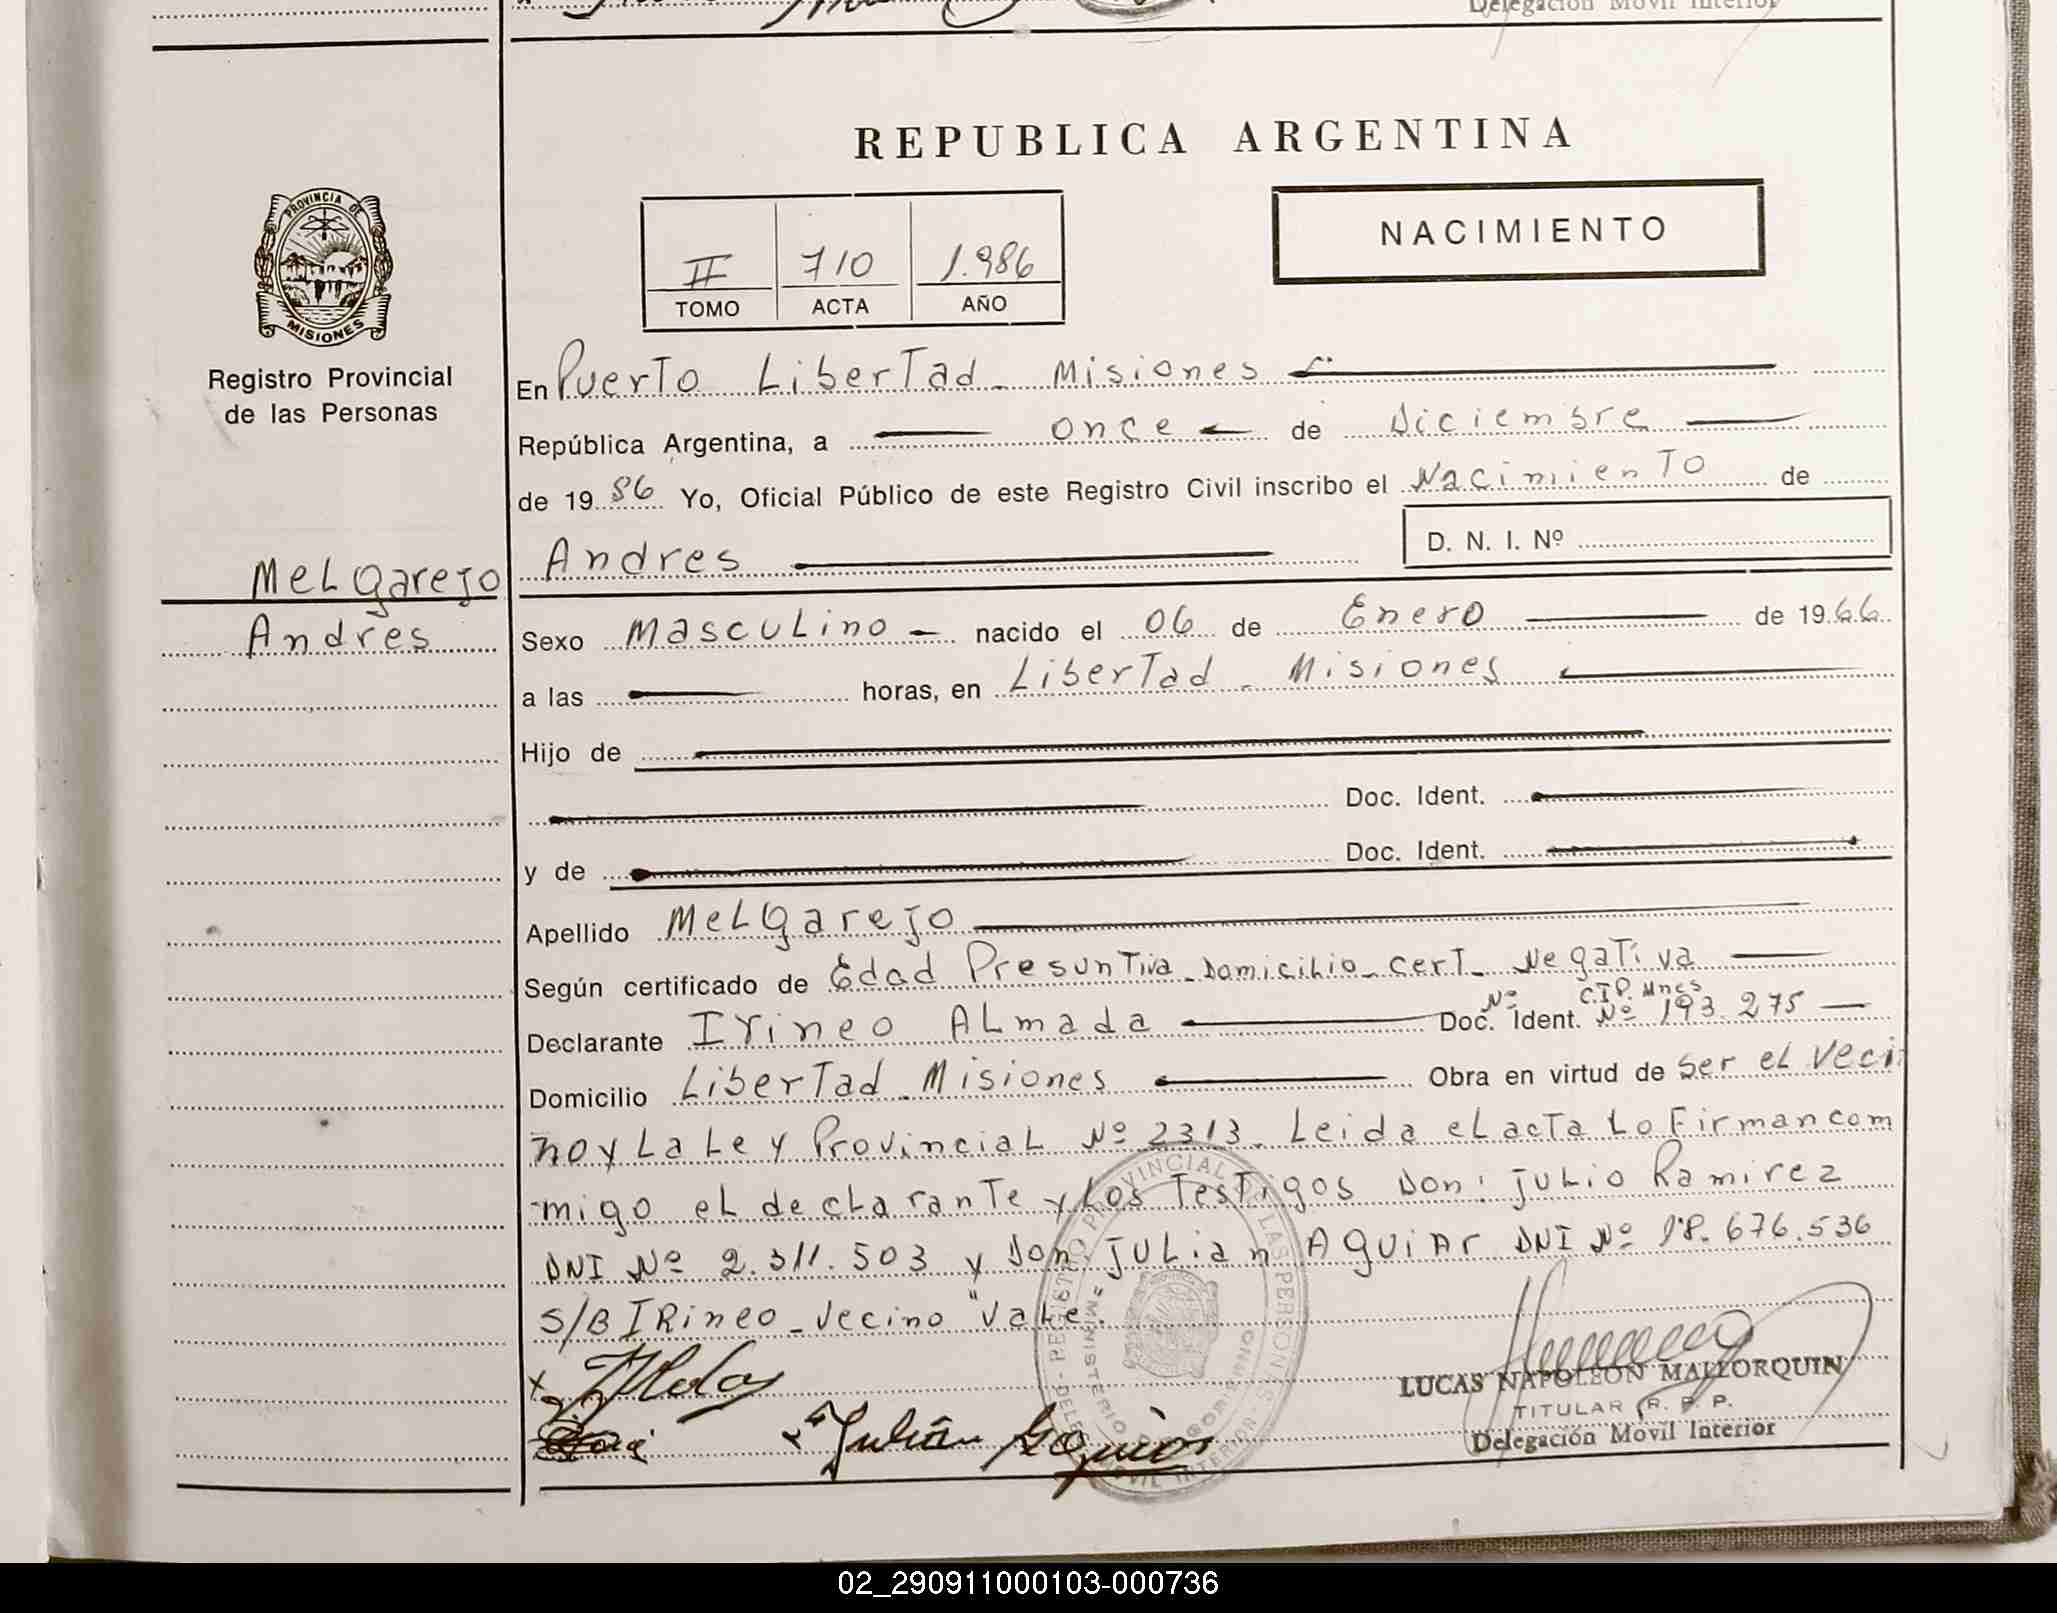 Delegación Móvil Interior
REPUBLICA ARGENTINA
PROVINCIA DE
MISIONES
Registro Provincial
de las Personas
II 710 1.986
TOMO ACTA AÑO
NACIMIENTO
En Puerto Libertad - Misiones
República Argentina, a once de Diciembre
de 1986 Yo, Oficial Público de este Registro Civil inscribo el Nacimiento de
D. N. I. Nº
Andres
Melgarejo
Andres
Sexo Masculino nacido el 06 de Enero de 1966
a las horas, en Libertad - Misiones
Hijo de
Doc. Ident.
y de Doc. Ident.
Apellido Melgarejo
Según certificado de Edad Presuntiva - Domicilio - cert - Negativa
Declarante Irineo Almada Doc. Ident. Nº C.I.P. Mnes Nº 193.275
Domicilio Libertad - Misiones Obra en virtud de ser el veci
no y la Ley Provincial Nº 2313. Leida el acta lo firman com
migo el declarante y los testigos Don: Julio Ramirez
DNI Nº 2.311.503 y Don Julian Aguiar DNI Nº 18.676.536
S/B IRineo - vecino "vale.
Julián
LUCAS NAPOLEON MALLORQUIN
TITULAR R. P. P.
Delegación Móvil Interior
02_290911000103-000736